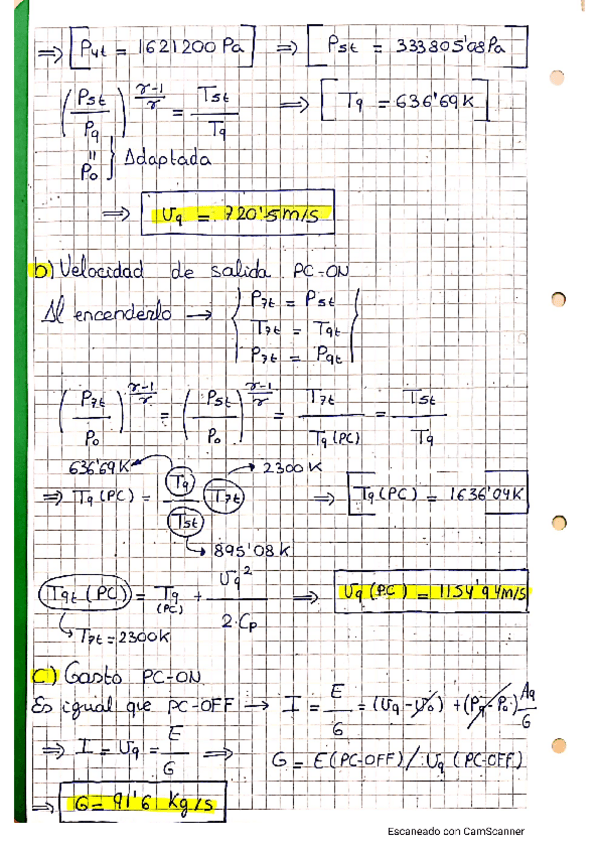 ⇒ [P4t = 1621200 Pa] ⇒ [P5t = 333805'08 Pa
(P5t/P9)^(γ-1/γ) = T5t/T9 ⇒ [T9 = 636'69 K]
" } Adaptada
P0
⇒ U9 = 720'5 m/s
b) Velocidad de salida PC-ON
Al encenderlo → { P7t = P5t
T7t = T9t
P7t = P9t }
(P7t/P0)^(γ-1/γ) = (P5t/P0)^(γ-1/γ) = T7t/T9(PC) = T5t/T9
636'69 K → 2300 K
⇒ T9(PC) = T9/T5t T7t ⇒ [T9(PC) = 1636'04 K]
→ 895'08 K
T9t(PC) = T9(PC) + U9²/2·Cp ⇒ U9(PC) = 1154'94 m/s
→ T7t = 2300K
c) Gasto PC-ON
Es igual que PC-OFF → I = E/G = (U9 - U0) + (P9 - P0) A9/G
⇒ I = U9 = E/G ⇒ G = E(PC-OFF) / U9 (PC-OFF)
⇒ G = 91'6 Kg/s
Escaneado con CamScanner